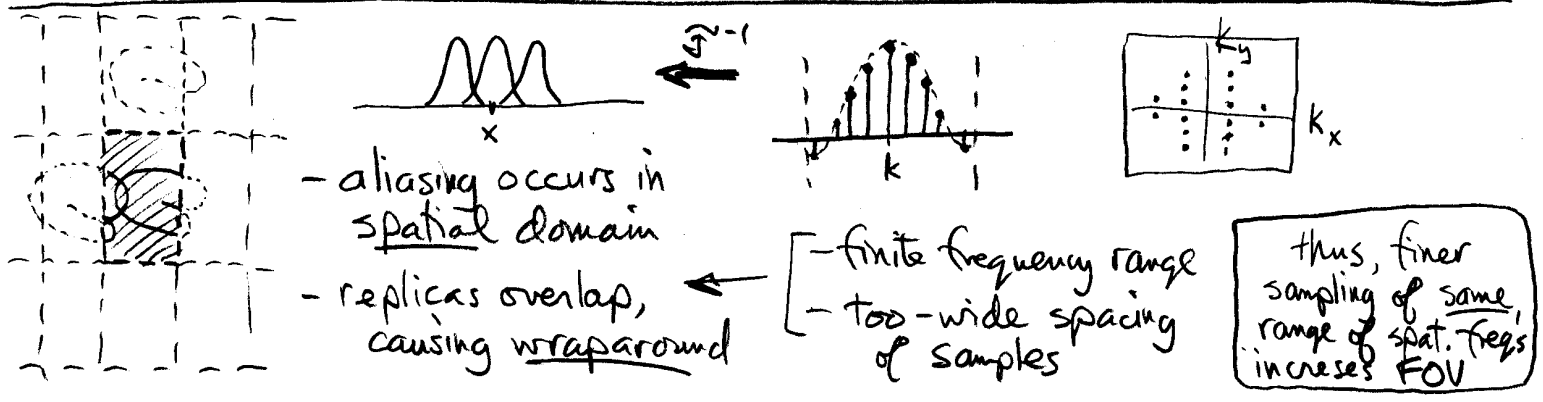 x
𝓕-1
k
ky
kx
- aliasing occurs in
spatial domain
- replicas overlap,
causing wraparound
- finite frequency range
- too-wide spacing
of samples
thus, finer
sampling of same
range of spat. freqs
increses FOV